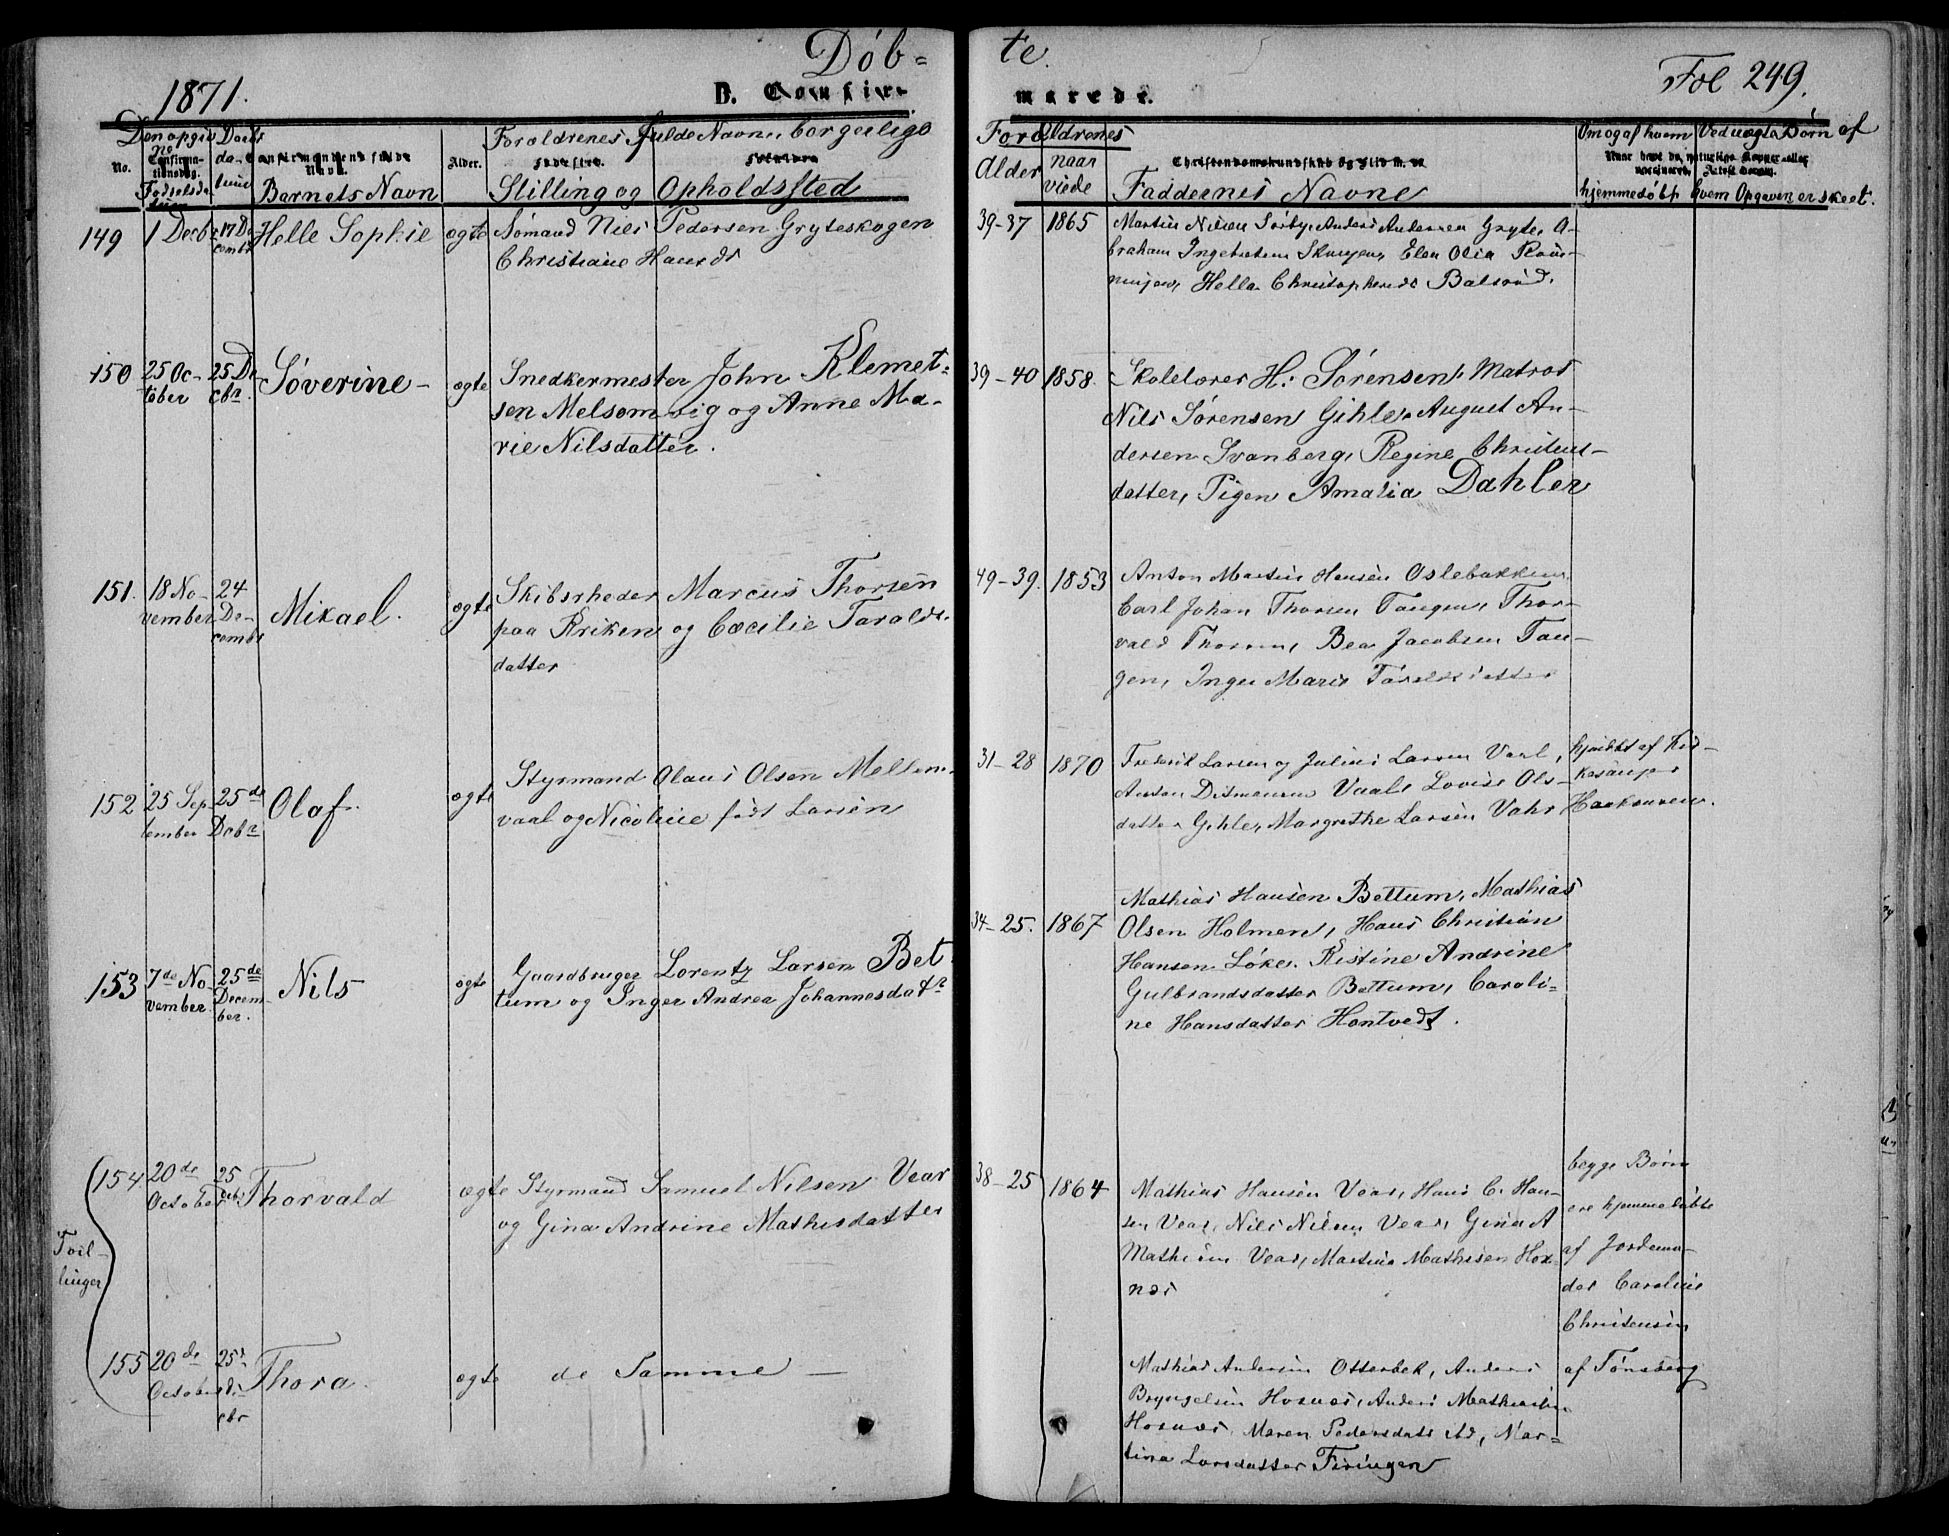 1871.
Døb-
te.
Fol 249.
D. Confir-
marede.
Den opgivne
Confirma-
tionsdag.
Fødselsda
Daabs
da-
tum
No.
Confirmandens fulde
Navn.
Barnets Navn
Alder.
Forældrenes fulde Navne, borgerlige
Fødested.
Forældre
Stilling og Opholdssted
Forældrenes
Alder
naar
viede
Christendomskundskab og Flid m. v.
Faddernes Navne
Om og af hvem
hjemmedøbt
Ved uægte Børn af
hvem Opgaven er skeet.
149
1 Decbr
17 De
cembr
Helle Sophie
ægte
Sømand Nils Pedersen Gryteskogen
Christiane Hansdr
39-37
1865
Martin Nilsen Sørby, Anders Andersen Gryte, A-
braham Ingebretsen Skougen, Elen Olia
Helle Christophersdr Balsrød.
150
25 Oc-
tober
25 De
cbr.
Søverine-
ægte
Snedkermester John Klemet-
sen Melsomvig og Anne Ma-
rie Nilsdatter.
39-40
1858.
Skolelærer H: Sørensen, Matros
Nils Sørensen Gihle, August An-
dersen Svanberg, Regine Christens-
datter, Pigen Amalia Dahler
151.
18 No-
vember
24
De-
cembr
Mikael.
ægte
Skibsrheder Marcus Thorsen
paa Kriken og Cæcilie Taralds-
datter
49-39.
1853
Anton Martin Hansen Oslebakken,
Carl Johan Thorsen Tangen, Thor-
vald Thorsen, Bea Jacobsen Tan-
gen, Inger Marie Taraldsdatter
152
25 Sep
tember
25de
Dcbr
Olaf.
ægte
Styrmand Olaus Olsen Mellem-
vaal og Nicoline født Larsen
31-28
1870
Frederik Larsen og Julius Larsen Vaal,
Anton Ditmansen Vaal, Lovise Ols-
datter Gihle, Margrethe Larsen Vahr
hjmdbt af Fis-
Haakonsen.
153
7de No
vember
25de
Decem-
ber.
Nils
ægte
Gaardbruger Lorentz Larsen Bet-
tum og Inger Andrea Johannesdatr
34-25.
1867
Mathias Hansen Bettum, Mathias
Olsen Holmen, Hans Christian
Hansen Løke, Kistine Andrine
Gulbrandsdatter Bettum, Caroli-
ne Hansdatter Hontvedt.
154
20de
October
25
deb.
Thorvald
ægte
Styrmand Samuel Nilsen Vear
og Gina Andrine Mathisdatter
38-25
1864
Mathias Hansen Vear, Hans C. Han-
sen Vear, Nils Nilsen Vear, Gina A
Mathisen Vear, Martine Mathisen Hox-
nes
begge Børn
ere hjemmedøbte
af Jordemo-
der Caroline
Christensen
af Tønsberg
Tvil-
linger
155
20de
October
25de
cbr
Thora
ægte
de Samme —
Mathias Andersen Otterbek, Anders
Bryngelsen Hoxnes, Anders Mathiassen
Hoxnes, Maren Pedersdatr ibd, Mar-
tina Larsdatter Firingen